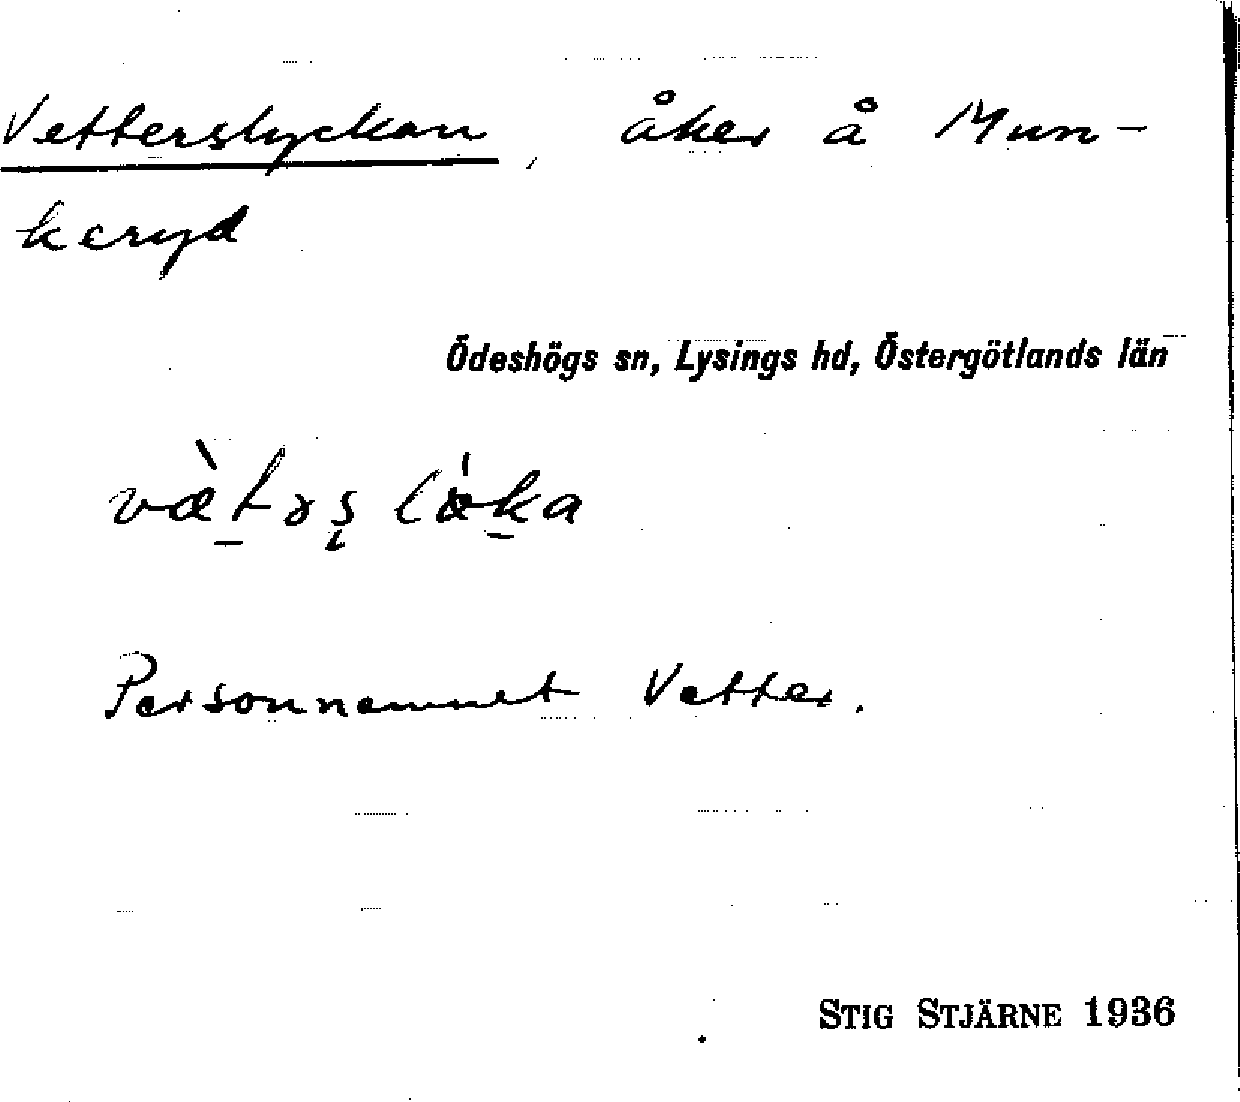 Vetterslyckan, åker å Mun-
keryd
Ödeshögs sn, Lysings hd, Östergötlands län
Personnamnet Vetter.
STIG STJÄRNE 1936